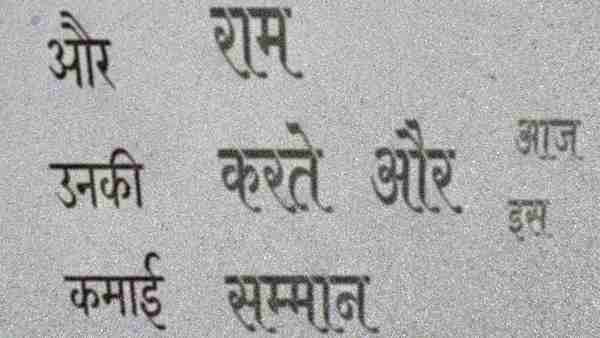 और राम
उनकी करते और आज
इस
कमाई सम्मान